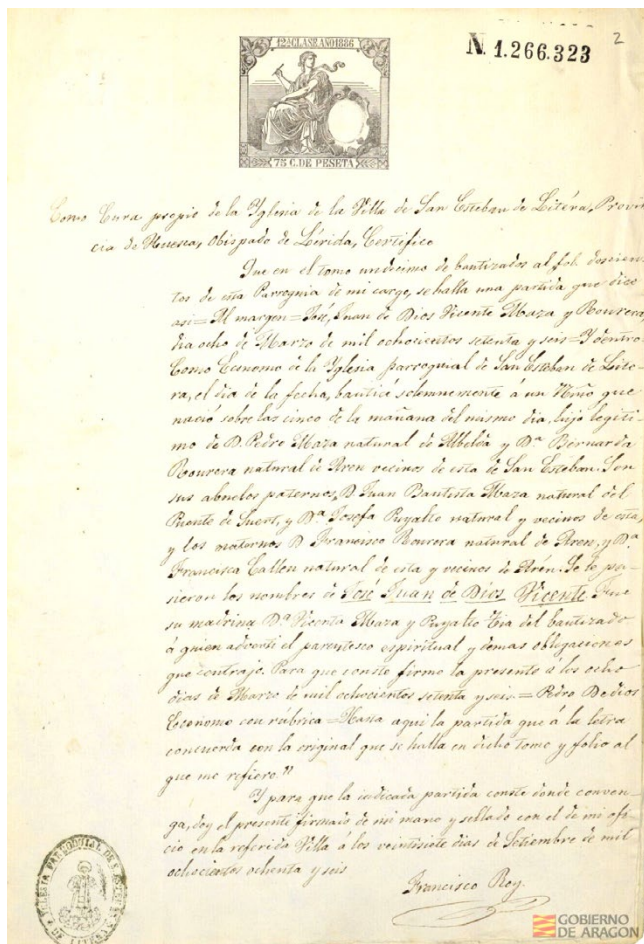 12ª CLASE. AÑO 1886
75 C. DE PESETA
N. 1.266.323
2
Como Cura propio de la Yglesia de la Villa de San Esteban de Litéra, Provin-
cia de Huesca, Obispado de Lérida, Certifico
Que en el tomo undécimo de bautizados al fol. doscien-
tos de esta Parroquia de mi cargo, se halla una partida que dice
asi = Al margen = José, Juan de Dios Vicente Maza y Rourera,
dia ocho de Marzo de mil ochocientos setenta y seis = Y dentro
Como Ecónomo de la Yglesia parroquial de San Esteban de Lite-
ra, el dia de la fecha, bauticé solemnemente á un Niño que
nació sobre las cinco de la mañana del mismo dia, hijo legíti-
mo de D. Pedro Maza natural de Albelda y Dª Bernarda
Rourera natural de Aren vecinos de esta de San Esteban. Son
sus abuelos paternos, D. Juan Bautista Maza natural del
Puente de Suert, y Dª Josefa Puyalto natural y vecinos de esta,
y los maternos D. Francisco Rourera natural de Aren, y Dª
Francisca Callen natural de esta y vecinos de Arén. Se le pu-
sieron los nombres de José Juan de Dios Vicente. Fue
su madrina Dª Vicenta Maza y Puyalto Tia del bautizado
á quien advertí el parentesco espiritual y demas obligaciones
que contrajo. Para que conste firmo la presente á los ocho
dias de Marzo de mil ochocientos setenta y seis. = Pedro Dedios
Ecónomo con rúbrica = Hasta aqui la partida que á la letra
concuerda con la original que se halla en dicho tomo y folio al
que me refiero."
Y para que la indicada partida conste donde conven-
ga, doy el presente firmado de mi mano y sellado con el de mi ofi-
cio en la referida Villa á los veintisiete dias de Setiembre de mil
ochocientos ochenta y seis
Francisco Roy.
IGLESIA PARROQUIAL DE S. ESTEBAN DE LITERA
GOBIERNO
DE ARAGON